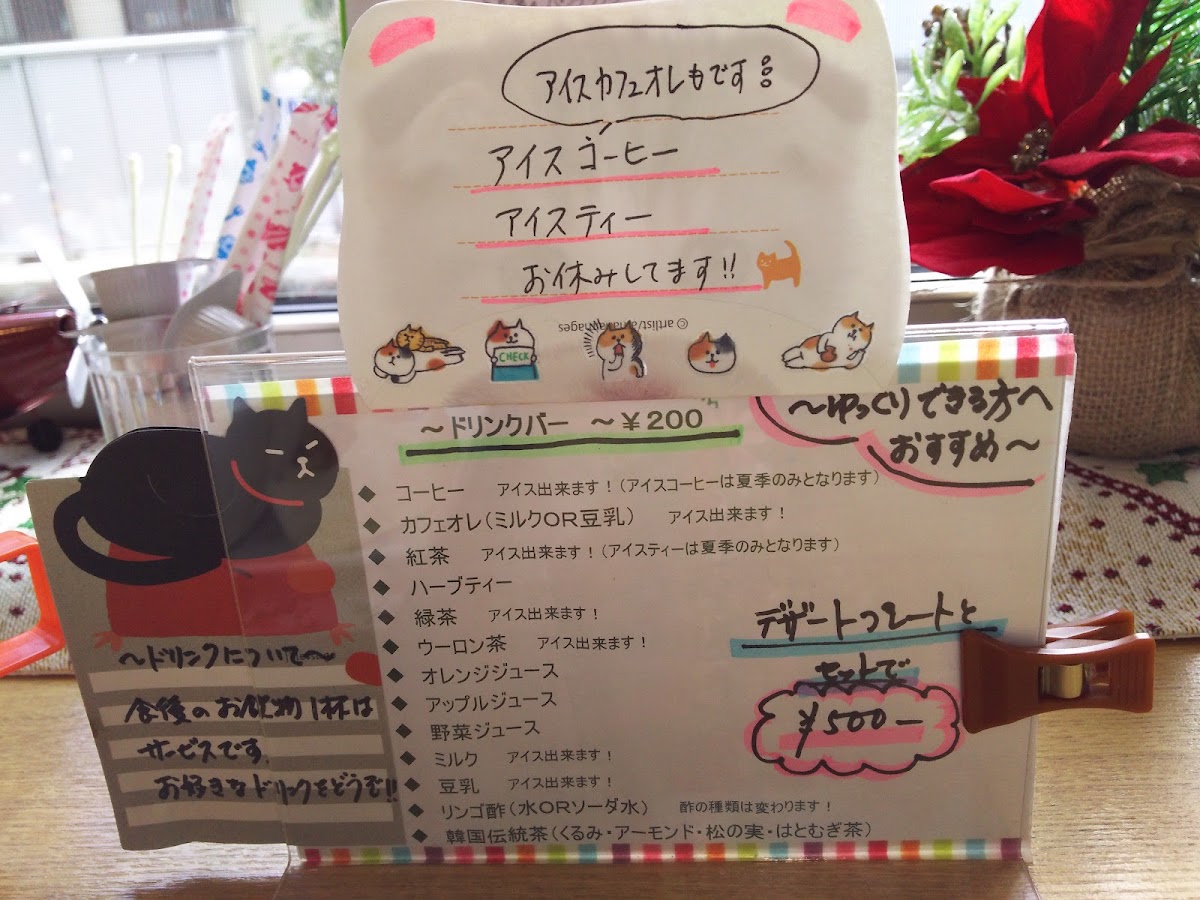 アイスカフェオレもです
アイスコーヒー
アイスティー
お休みしてます!!
CHECK
～ドリンクバー ～¥200
～ゆっくりできる方へ
おすすめ～
◆ コーヒー アイス出来ます!(アイスコーヒーは夏季のみとなります)
◆ カフェオレ(ミルクOR豆乳) アイス出来ます!
◆ 紅茶 アイス出来ます!(アイスティーは夏季のみとなります)
◆ ハーブティー
◆ 緑茶 アイス出来ます!
◆ ウーロン茶 アイス出来ます!
◆ オレンジジュース
◆ アップルジュース
◆ 野菜ジュース
◆ ミルク アイス出来ます!
◆ 豆乳 アイス出来ます!
◆ リンゴ酢(水ORソーダ水) 酢の種類は変わります!
◆ 韓国伝統茶(くるみ・アーモンド・松の実・はとむぎ茶)
デザートプレートと
セットで
¥500―
～ドリンクについて～
食後のお飲物1杯は
サービスです。
お好きなドリンクをどうぞ!!